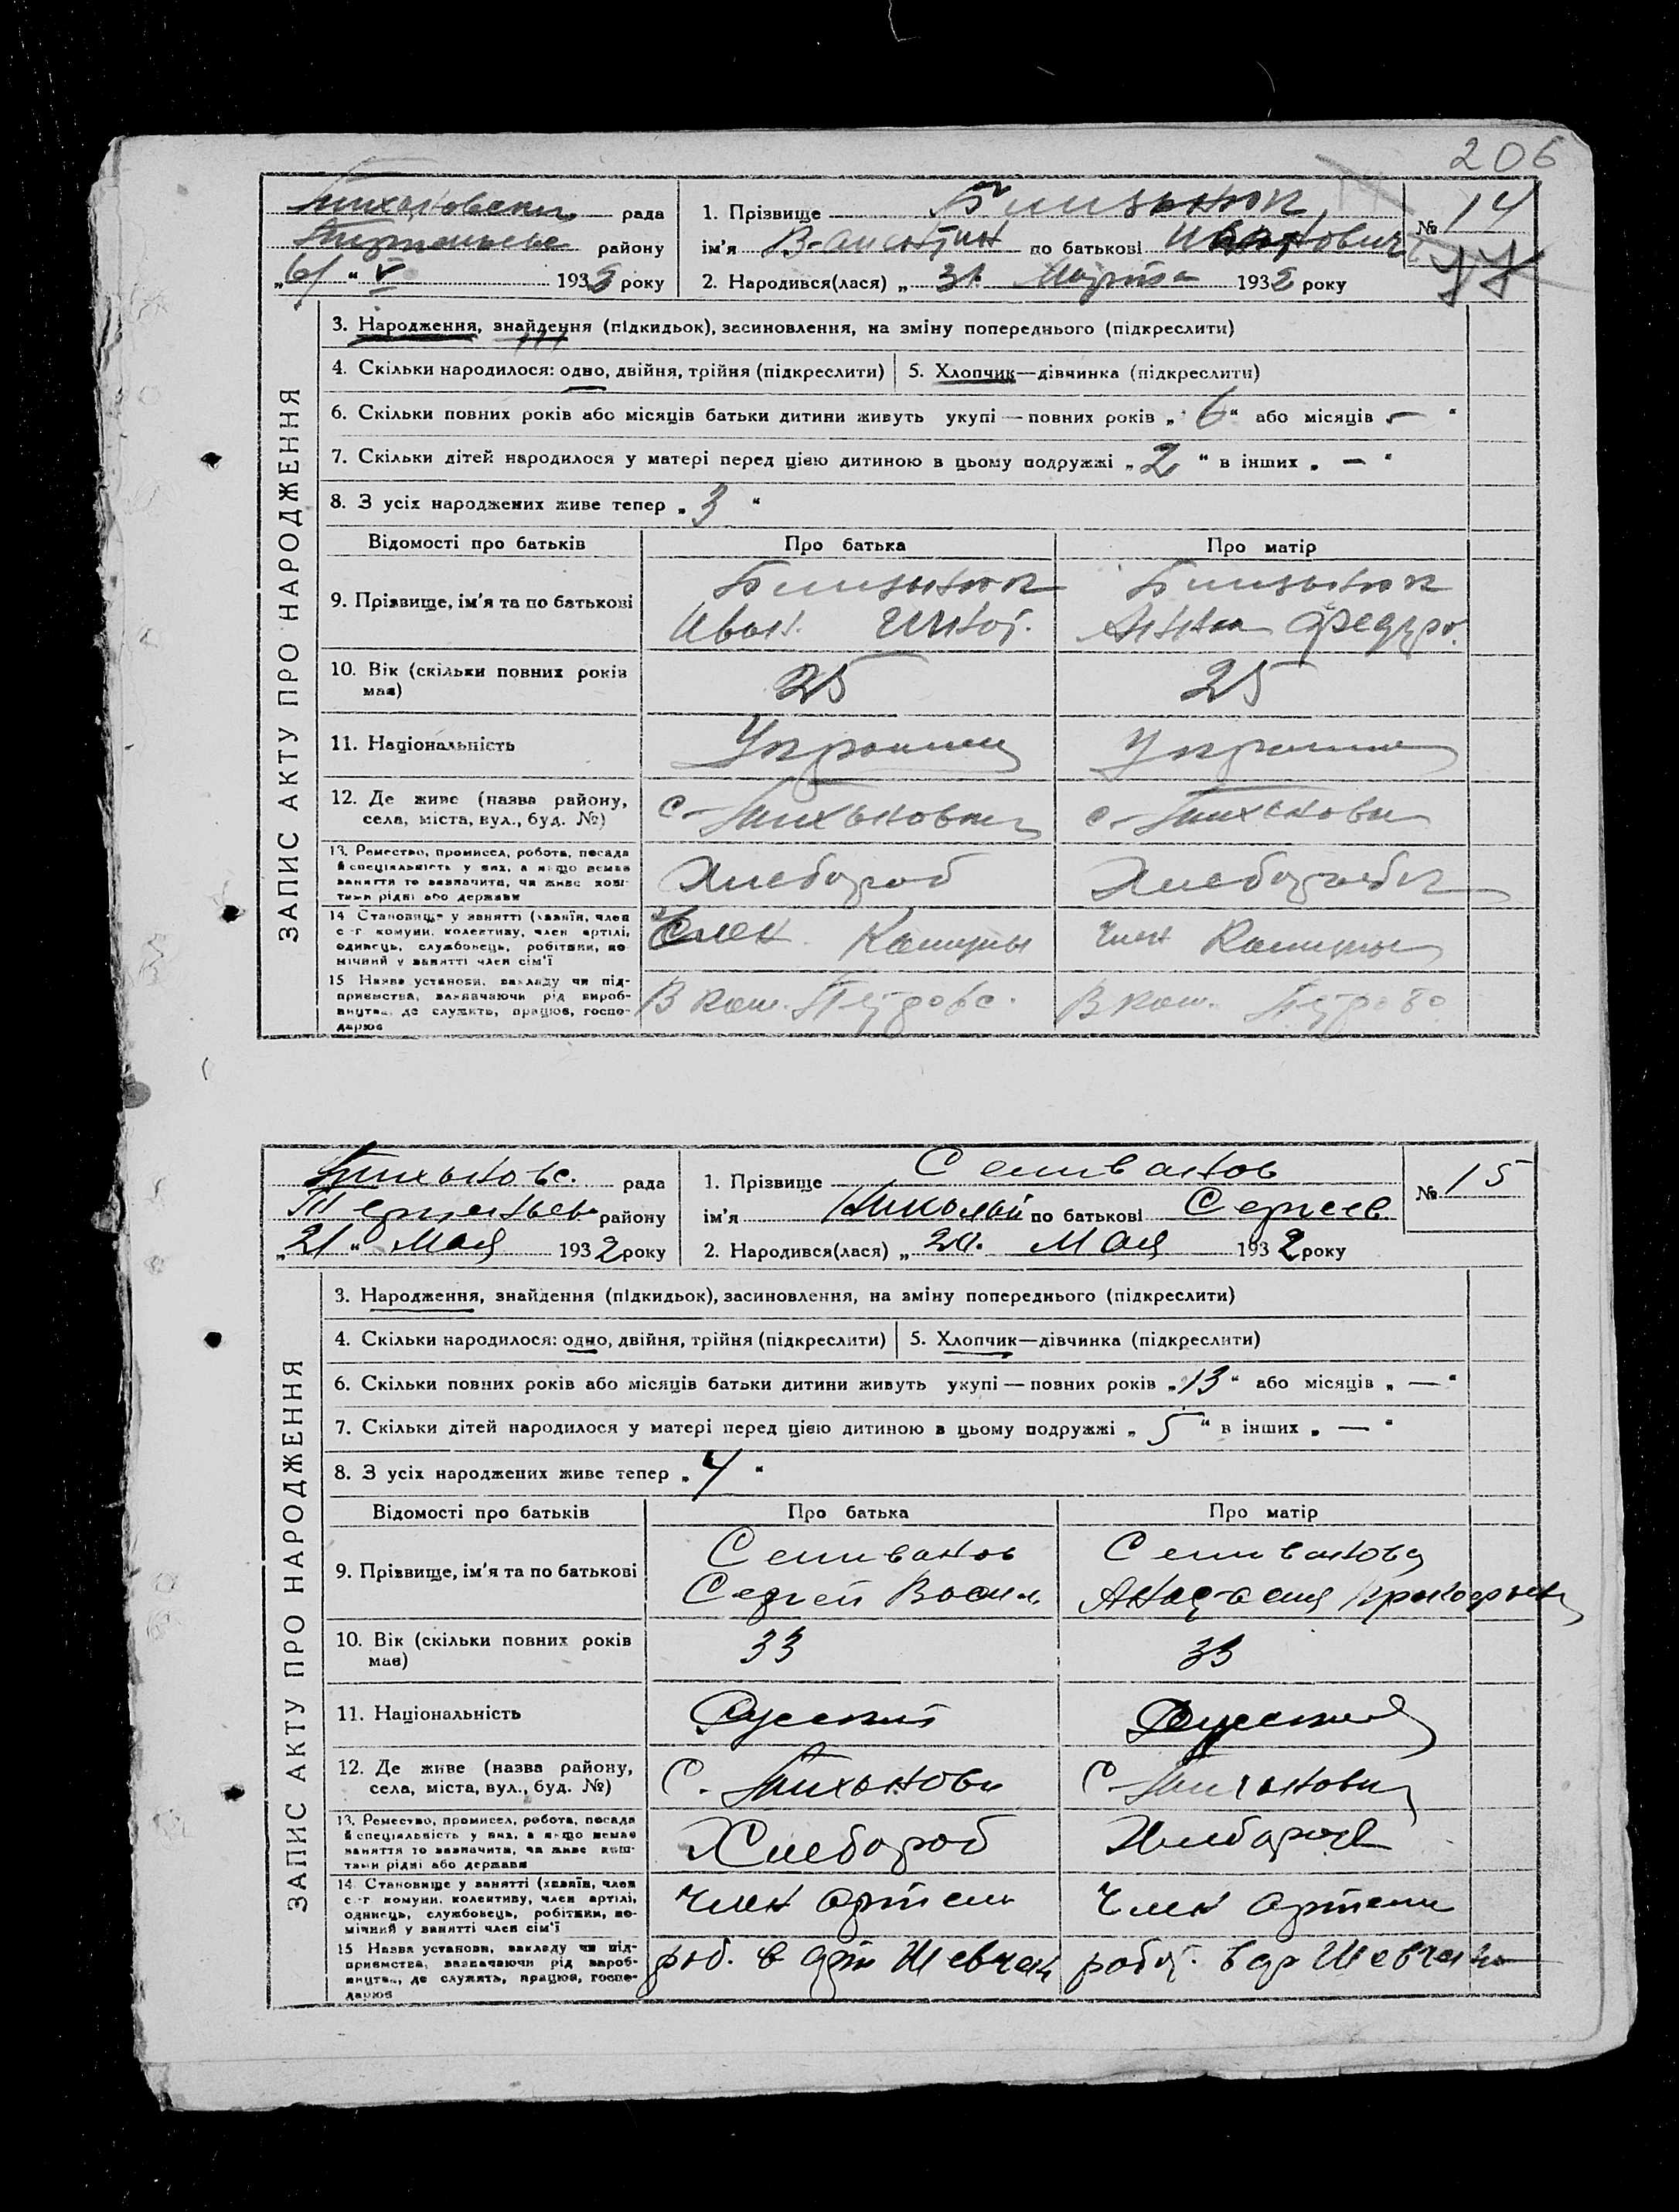 206
рада
району
193 року
1. Прізвище Близнюк
ім'я Валентин по батькові Иванович
2. Народився(лася) „ 31 Марта 1932 року
№ 14
ЗАПИС АКТУ ПРО НАРОДЖЕННЯ
3. Народження, знайдення (підкидьок), засиновлення, на зміну попереднього (підкреслити)
4. Скільки народилося: одно, двійня, трійня (підкреслити)
5. Хлопчик—дівчинка (підкреслити)
6. Скільки повних років або місяців батьки дитини живуть укупі — повних років „ 6 “ або місяців „ — “
7. Скільки дітей народилося у матері перед цією дитиною в цьому подружжі „ 2 “ в інших „ — “
8. З усіх народжених живе тепер „ 3 “
Відомості про батьків Про батька Про матір
9. Прізвище, ім'я та по батькові
Близнюк Близнюк
Иван Анна Федоро.
10. Вік (скільки повних років має) 25 25
11. Національність Украинец Украин
12. Де живе (назва району,
села, міста, вул., буд. №)
с-Тихановки с-Тиханови
13. Ремество, промисел, робота, посада
й спеціальність у них, а якщо немає
заняття то зазначити, чи живе кош-
тами рідні або держави
Хлебороб Хлебороб
14 Становище у занятті (хазяїн, член
с-г комуни, колективу, член артілі,
одинець, службовець, робітник, по-
мічний у занятті член сім'ї
Член Комуны Член Комуны
15 Назва установи, закладу чи під-
приємства, зазначаючи рід вироб-
ництва, де служить, працює, госпо-
дарює
В ком. Петровс. В ком.
Тихановс. рада
району
„ 21 “ Мая 1932 року
1. Прізвище Селиванов
ім'я Николай по батькові Сергеев
2. Народився(лася) „ 20. Мая 1932 року
№ 15
ЗАПИС АКТУ ПРО НАРОДЖЕННЯ
3. Народження, знайдення (підкидьок), засиновлення, на зміну попереднього (підкреслити)
4. Скільки народилося: одно, двійня, трійня (підкреслити)
5. Хлопчик—дівчинка (підкреслити)
6. Скільки повних років або місяців батьки дитини живуть укупі — повних років „ 13 “ або місяців „ — “
7. Скільки дітей народилося у матері перед цією дитиною в цьому подружжі „ 5 “ в інших „ — “
8. З усіх народжених живе тепер „ 4 “
Відомості про батьків Про батька Про матір
9. Прізвище, ім'я та по батькові
Селиванов Селиванова
Сергей Васил. Анастасия Прокофьев
10. Вік (скільки повних років має) 33 33
11. Національність Русский Русская
12. Де живе (назва району,
села, міста, вул., буд. №)
С. Тиханови С-Тиханови
13. Ремество, промисел, робота, посада
й спеціальність у них, а якщо немає
заняття то зазначити, чи живе кош-
тами рідні або держави
Хлебороб Хлебороб
14 Становище у занятті (хазяїн, член
с-г комуни, колективу, член артілі,
одинець, службовець, робітник, по-
мічний у занятті член сім'ї
Член артели Член артели
15 Назва установи, закладу чи під-
приємства, зазначаючи рід вироб-
ництва, де служить, працює, госпо-
дарює
роб. в арт Шевчен робот. в ар Шевченко